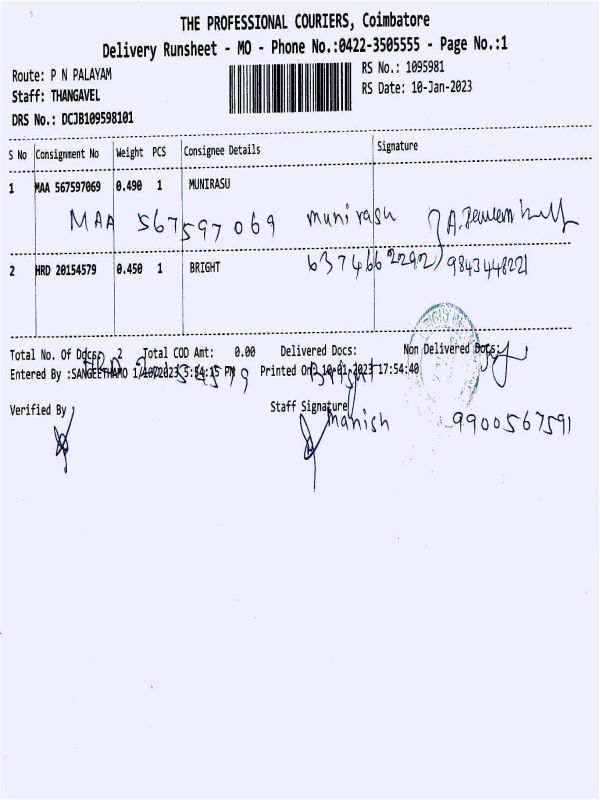 THE PROFESSIONAL COURIERS, Coimbatore
Delivery Runsheet - MO - Phone No.:0422-3505555 - Page No.:1
Route: P N PALAYAM RS No.: 1095981
Staff: THANGAVEL RS Date: 10-Jan-2023
DRS No.: DCJB109598101
S No Consignment No Weight PCS Consignee Details Signature
1 MAA 567597069 0.490 1 MUNIRASU
MAA 567597069 munirasu
2 HRD 20154579 0.450 1 BRIGHT
6374662292 9843448221
Total No. Of Docs: 2 Total COD Amt: 0.00 Delivered Docs: Non Delivered Docs:
HRD 20154579 Bright
Entered By :SANGEETHAMO 1/10/2023 5:54:15 PM Printed On 10-01-2023 17:54:40
Verified By Staff Signature
Manish 9900567591